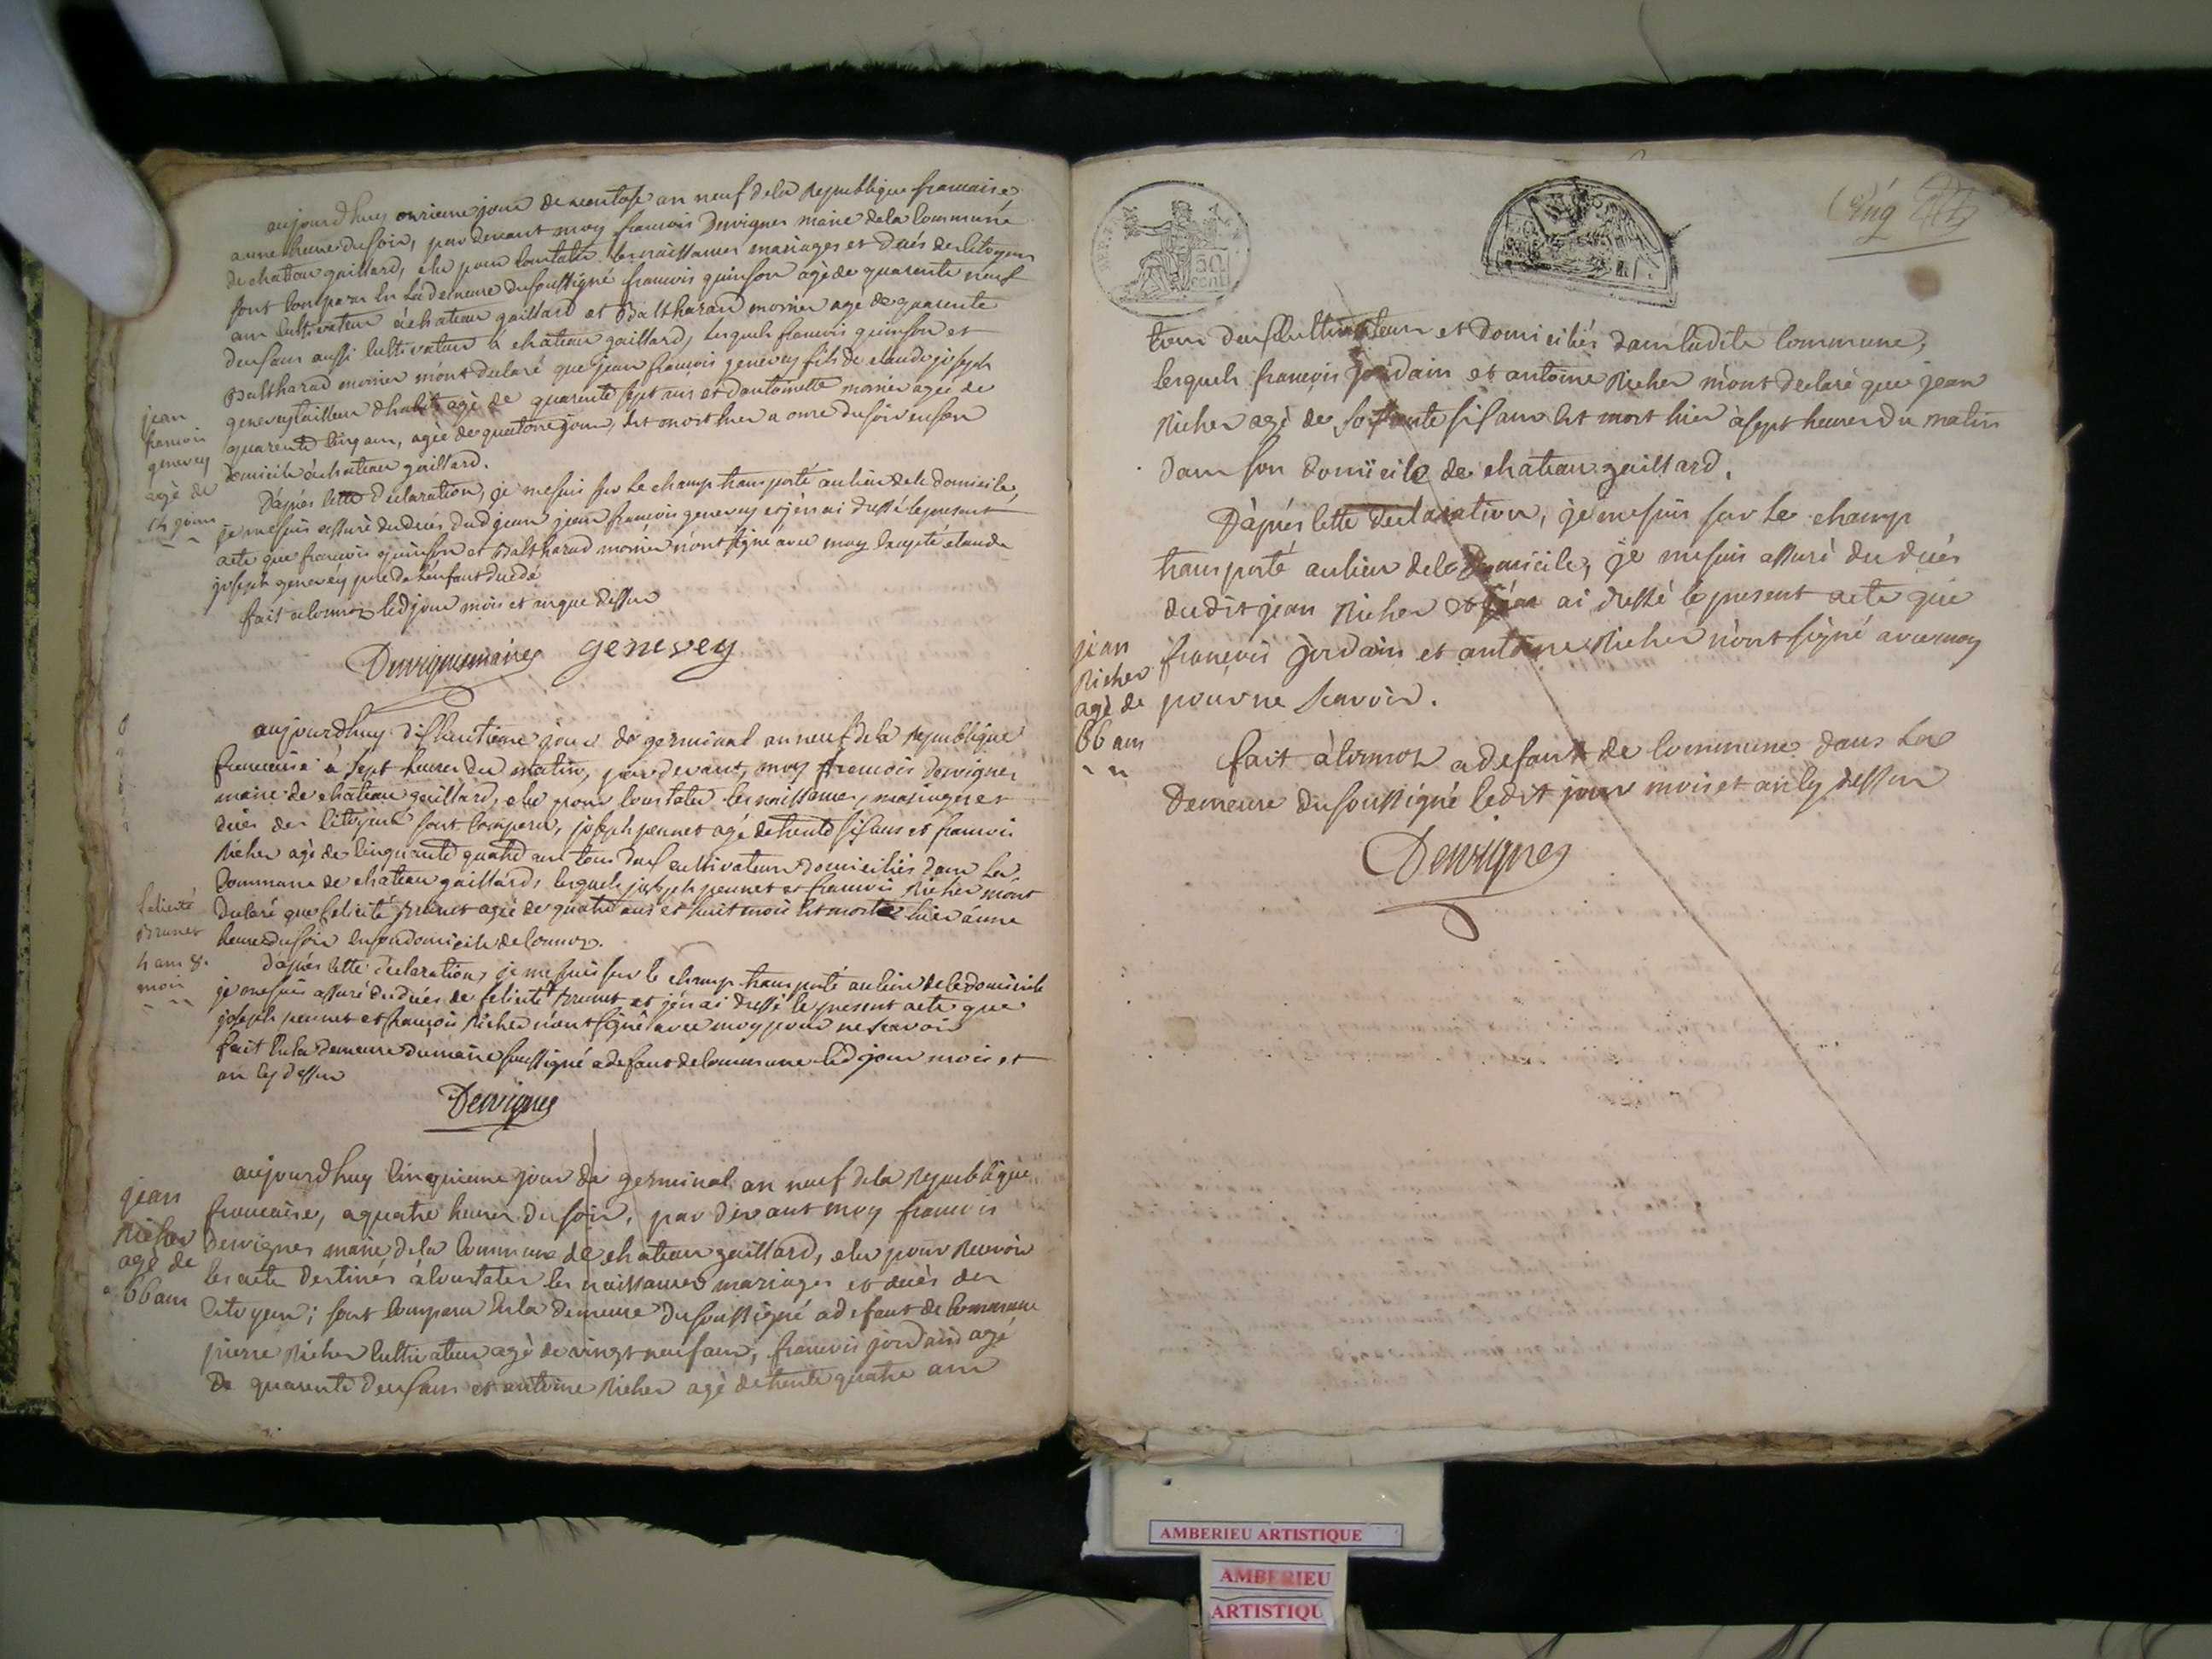 aujourdhuy onzieme jour de ventose an neuf de la Republique francaise
a une heure du soir, par devant moy francois Dervignes maire de la Commune
de chateau gaillard, elu pour Constater les naissances mariages et décés des Citoyens
sont Comparu En La demeure du soussigné francois quinson agé de quarente neuf
ans Cultivateur à chateau gaillard et Balthazard monier agé de quarente
deux ans aussi Cultivateur à chateau gaillard, lesquels francois quinson et
Balthazard monier m'ont declaré que jean françois genevey fils de claude joseph
genevey tailleur dhabit agé de quarente sept ans et dantoinette monier agée de
quarente Cinq ans, agée de quatorze jours, Est mort hier a onze du soir en son
domicile à chateau gaillard.
jean
francois
genevey
agé de
14 jours
D'aprés Cette declaration, je me suis sur Le champ transporté au lieu de Ce domicile,
je me suis assuré du décés dud jean francois genevey et j'en ai dressé le present
acte que francois quinson et Balthazard monier n'ont signé avec moy Excepté claude
joseph genevéy pere de L'enfant decedé
fait a Cormoz led jour mois et an que dessus
Dervigne maire genevey
aujourdhuy dixhuitieme jour de germinal an neuf de la Republique
francaise à sept heures du matin, par devant, moy francois Dervignes
maire de chateau gaillard, elu pour Constater les naissances, mariages et
décés des Citoyens sont Comparu, joseph pennet agé de trente six ans et francois
Richer agé de Cinquante quatre ans tous deux cultivateurs domiciliés dans La
Commune de chateau gaillard, lesquels joseph pennet et francois Richer m'ont
declaré que felicité Brunet agée de quatre ans et huit mois Est morte hier à une
heure du soir En son domicile de Cormoz.
felicité
Brunet
4 ans 8.
mois
D'aprés Cette declaration, je me suis sur le champ transporté au lieu de Ce domicile
je me suis assuré du décés de felicité Brunet et j'en ai dressé le present acte que
joseph pennet et françois Richer n'ont signé avec moy pour ne scavoir
fait En la demeure du maire soussigné a defaut de Commune led jour mois et
an Cy dessus
Dervignes
jean
Richer
agé de
66 ans
aujourdhuy Cinquieme jour de germinal an neuf de la Republique
francaise, a quatre heures du soir, par devant moy francois
Dervignes maire de la Commune de chateau gaillard, elu pour Recevoir
les acte Destinés à Constater les naissances mariages et décès des
Citoyens; sont Comparu En la demeure du soussigné a defaut de Commune
pierre Richer Cultivateur agé de vingt neuf ans, francois jordain agé
De quarente deux ans et antoine Richer agé de trente quatre ans
50
cent.
tous deux Cultivateurs et domiciliés dans ladite Commune,
lesquels françois jordain et antoine Richer m'ont declaré que jean
Richer agé de soixante six ans Est mort hier à sept heures du matin
dans son domicile de chateau gaillard.
D'aprés Cette declaration, je me suis sur Le champ
transporté au lieu de Ce Domicile, je me suis assuré du décés
dudit jean Richer et j'en ai dressé le present acte que
françois jordain et antoine Richer n'ont signé avec moy
pour ne scavoir.
jean
Richer
agé de
66 ans
fait à Cormoz a defaut de Commune dans La
Demeure du soussigné ledit jour mois et an Cy dessus
Dervignes
AMBERIEU ARTISTIQUE
AMBERIEU
ARTISTIQU